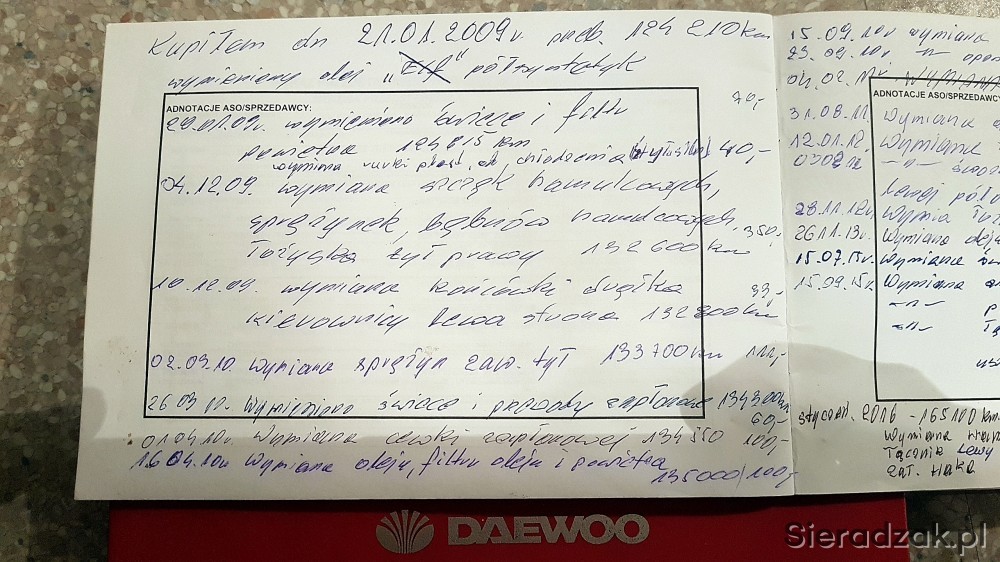 Kupiłem dn 21.01.2009r. prob. 124 210 km
wymieniony olej „ " półsyntetyk
ADNOTACJE ASO/SPRZEDAWCY:
29.01.09r. wymieniono świece i filtr 70,-
powietrza 124 815 km
wymiana rurki płast. ch. chłodzenia 40,-
04.12.09. wymiana szczęk hamulcowych,
sprężynek, bębnów hamulcowych, 350,-
łożyska tył prawy 132 600 km
10.12.09. wymiana końcówki drążka 33,-
kierownicy lewa strona 132 800 km
02.03.10. wymiana sprężyn zaw. tył 133 700 km 111,-
26.03.10. wymieniono świece i przewody zapłonowe 134 300 km
60,-
01.04.10r. wymiana cewki zapłonowej 134 550 100,-
16.04.10r. wymiana oleju, filtru oleju i powietrza
135 000/100,-
15.09.10r wymiana
23.09.10r. -"- opon
04.02.11r. wymiana
ADNOTACJE ASO/SPRZEDAWCY
31.08.11. Wymiana
12.01.12. Wymiana
0302 12 -"-
lewej pół
28.11.12r. Wymia
26 11.13r. Wymiana oleju
15.07.15r. Wymiana
15.09.15r. Wymiana
-"-
-"-
styczeń. 2016 - 165100 km
wymiana
łącznik lewy
zał. haka
DAEWOO
Sieradzak.pl